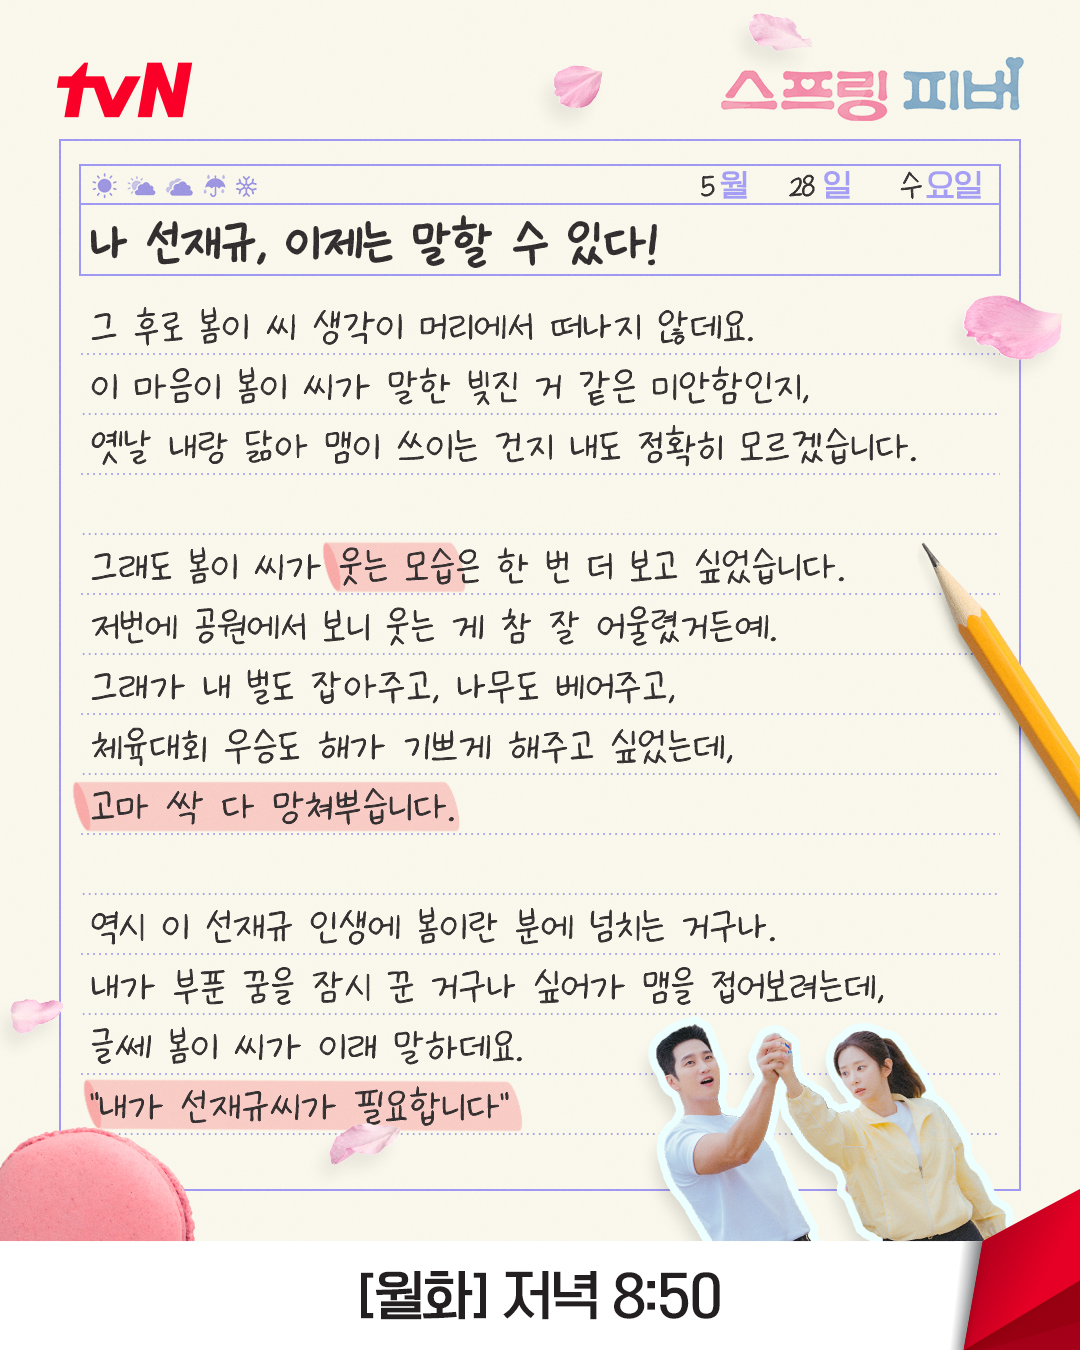 tvN
스프링 피버
5월 28일 수요일
나 선재규, 이제는 말할 수 있다!
그 후로 봄이 씨 생각이 머리에서 떠나지 않데요.
이 마음이 봄이 씨가 말한 빚진 거 같은 미안함인지,
옛날 내랑 닮아 맴이 쓰이는 건지 내도 정확히 모르겠습니다.
그래도 봄이 씨가 웃는 모습은 한 번 더 보고 싶었습니다.
저번에 공원에서 보니 웃는 게 참 잘 어울렸거든예.
그래가 내 벌도 잡아주고, 나무도 베어주고,
체육대회 우승도 해가 기쁘게 해주고 싶었는데,
고마 싹 다 망쳐뿌습니다.
역시 이 선재규 인생에 봄이란 분에 넘치는 거구나.
내가 부푼 꿈을 잠시 꾼 거구나 싶어가 맴을 접어보려는데,
글쎄 봄이 씨가 이래 말하데요.
"내가 선재규씨가 필요합니다"
[월화] 저녁 8:50